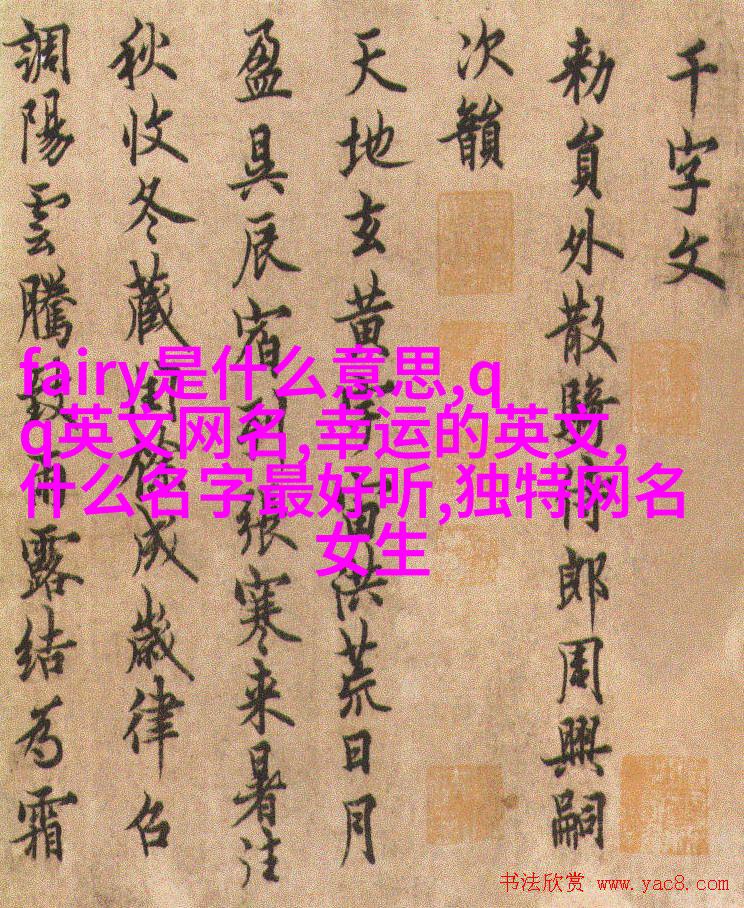 千字文
勅員外散騎侍郎周興嗣
次韻
天地玄黃宇宙洪荒日月
盈昃辰宿列張寒来暑往
秋收冬藏閏餘成歲律召
調陽雲騰致雨露結為霜
fairy是什么意思,q
q英文网名,幸运的英文,
什么名字最好听,独特网名
女生
书法欣赏 www.yac8.com